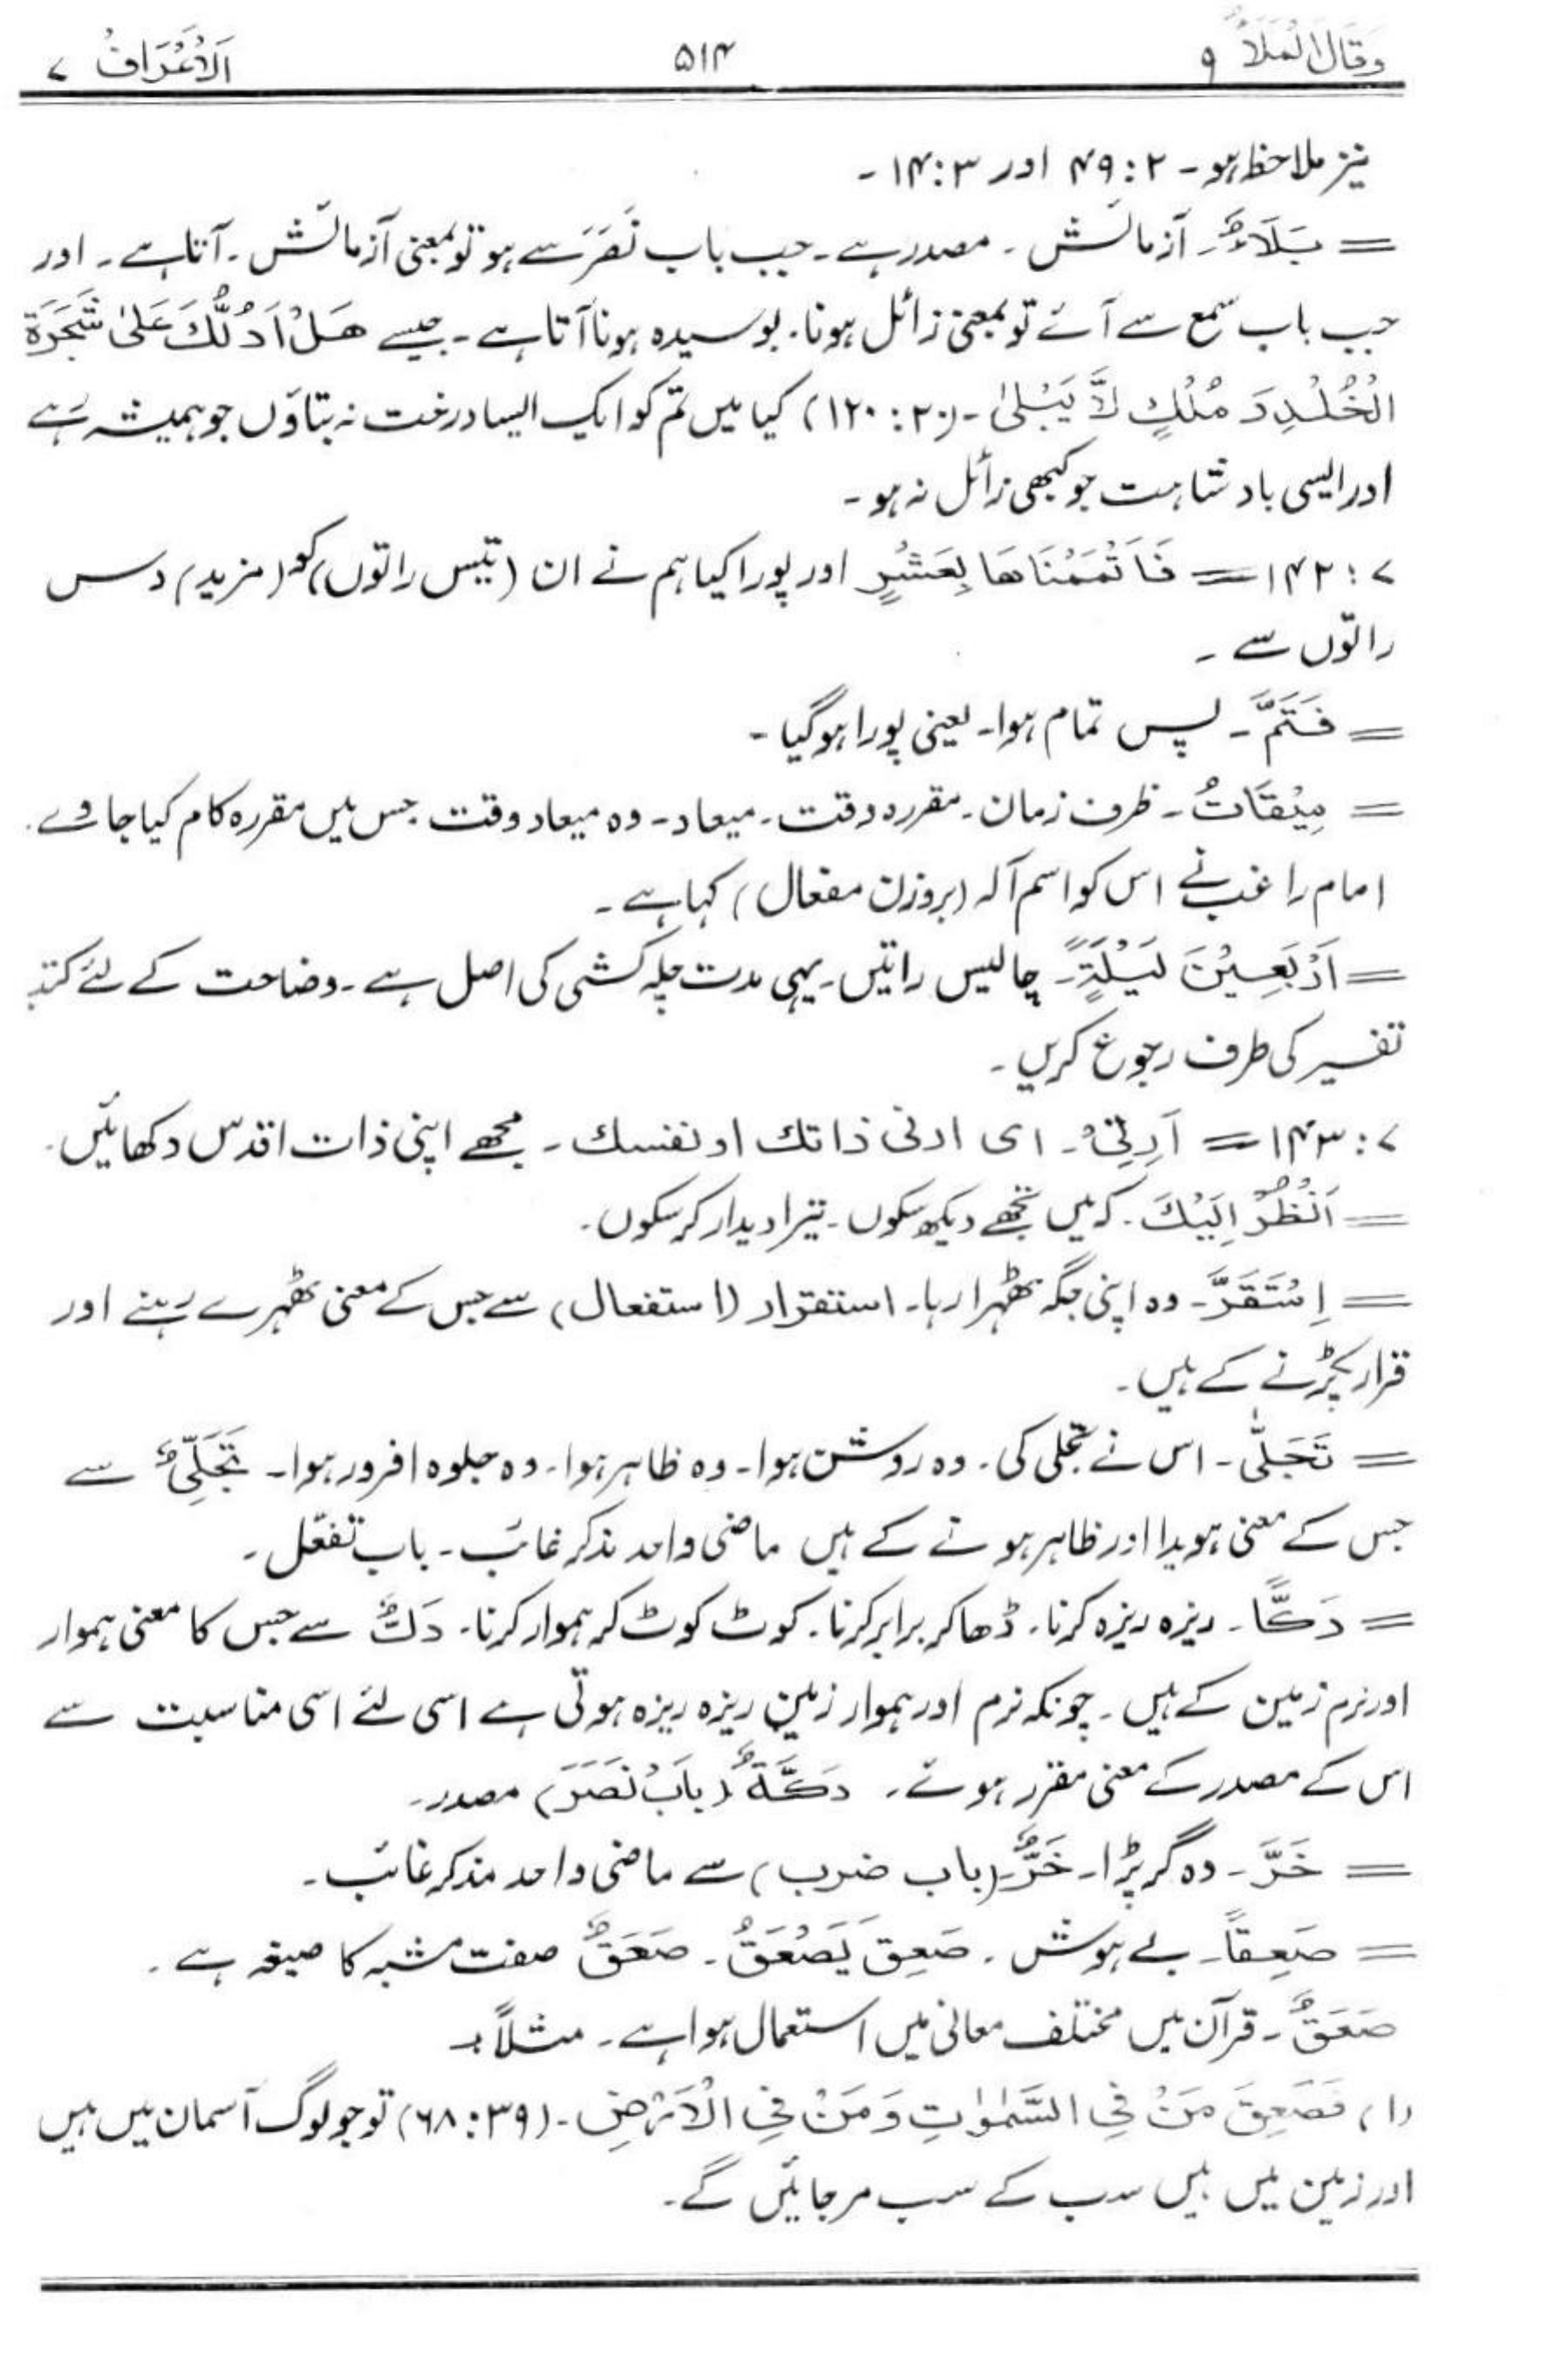 وَقَالَ الْمَلَأُ ۹ ۵۱۴ اَلْاَعْرَافُ ۷
نیز ملاحظہ ہو۔ ۲ : ۴۹ اور ۳ : ۱۴۔
= بَلَاءٌ۔ آزمائش۔ مصدر ہے۔ جب باب نَصَرَ سے ہو تو بمعنی آزمائش۔ آتا ہے۔ اور
جب باب سمع سے آئے تو بمعنی زائل ہونا۔ بوسیدہ ہونا آتا ہے۔ جیسے هَلْ اَدُلُّكَ عَلٰى شَجَرَةِ
الْخُلْدِ وَ مُلْكٍ لَّا يَبْلٰى۔ (۲۰ : ۱۲۰) کیا میں تم کو ایک ایسا درخت نہ بتاؤں جو ہمیشہ رہے
اور ایسی بادشاہت جو کبھی زائل نہ ہو۔
۷ : ۱۴۲ = فَاَتْمَمْنَاهَا بِعَشْرٍ اور پورا کیا ہم نے ان (تیس راتوں) کو (مزید) دس
راتوں سے۔
= فَتَمَّ۔ پس تمام ہوا۔ یعنی پورا ہو گیا۔
= مِيْقَاتُ۔ ظرف زمان۔ مقررہ وقت۔ میعاد۔ وہ میعاد وقت جس میں مقررہ کام کیا جاوے۔
امام راغب نے اس کو اسم آلہ (بروزن مفعال) کہا ہے۔
= اَرْبَعِيْنَ لَيْلَةً۔ چالیس راتیں۔ یہی مدت چلہ کشی کی اصل ہے۔ وضاحت کے لئے کتب
تفسیر کی طرف رجوع کریں۔
۷ : ۱۴۳ = اَرِنِیْ۔ ای ارنی ذاتك او نفسك۔ مجھے اپنی ذات اقدس دکھائیں۔
= اَنْظُرْ اِلَيْكَ۔ کہ میں تجھے دیکھ سکوں۔ تیرا دیدار کر سکوں۔
= اِسْتَقَرَّ۔ وہ اپنی جگہ ٹھہرا رہا۔ استقرار (استفعال) سے جس کے معنی ٹھہرے رہنے اور
قرار پکڑنے کے ہیں۔
= تَجَلّٰى۔ اس نے تجلی کی۔ وہ روشن ہوا۔ وہ ظاہر ہوا۔ وہ جلوہ افروز ہوا۔ تَجَلِّیٌ سے
جس کے معنی ہویدا اور ظاہر ہونے کے ہیں ماضی واحد مذکر غائب۔ باب تفعّل۔
= دَكًّا۔ ریزہ ریزہ کرنا۔ ڈھا کر برابر کرنا۔ کوٹ کوٹ کر ہموار کرنا۔ دَكٌّ سے جس کا معنی ہموار
اور نرم زمین کے ہیں۔ چونکہ نرم اور ہموار زمین ریزہ ریزہ ہوتی ہے اسی لئے اسی مناسبت سے
اس کے مصدر کے معنی مقرر ہوئے۔ دَكَّةٌ (بَابْ نَصَرَ) مصدر۔
= خَرَّ۔ وہ گر پڑا۔ خَرٌّ۔ (باب ضرب) سے ماضی واحد مذکر غائب۔
= صَعِقًا۔ بے ہوش۔ صَعِقَ يَصْعَقُ۔ صَعَقٌ صفت مشبہ کا صیغہ ہے۔
صَعَقٌ۔ قرآن میں مختلف معانی میں استعمال ہوا ہے۔ مثلاً:
(۱) فَصَعِقَ مَنْ فِي السَّمٰوٰتِ وَمَنْ فِي الْاَرْضِ۔ (۳۹ : ۶۸) تو جو لوگ آسمان میں ہیں
اور زمین میں ہیں سب کے سب مر جائیں گے۔